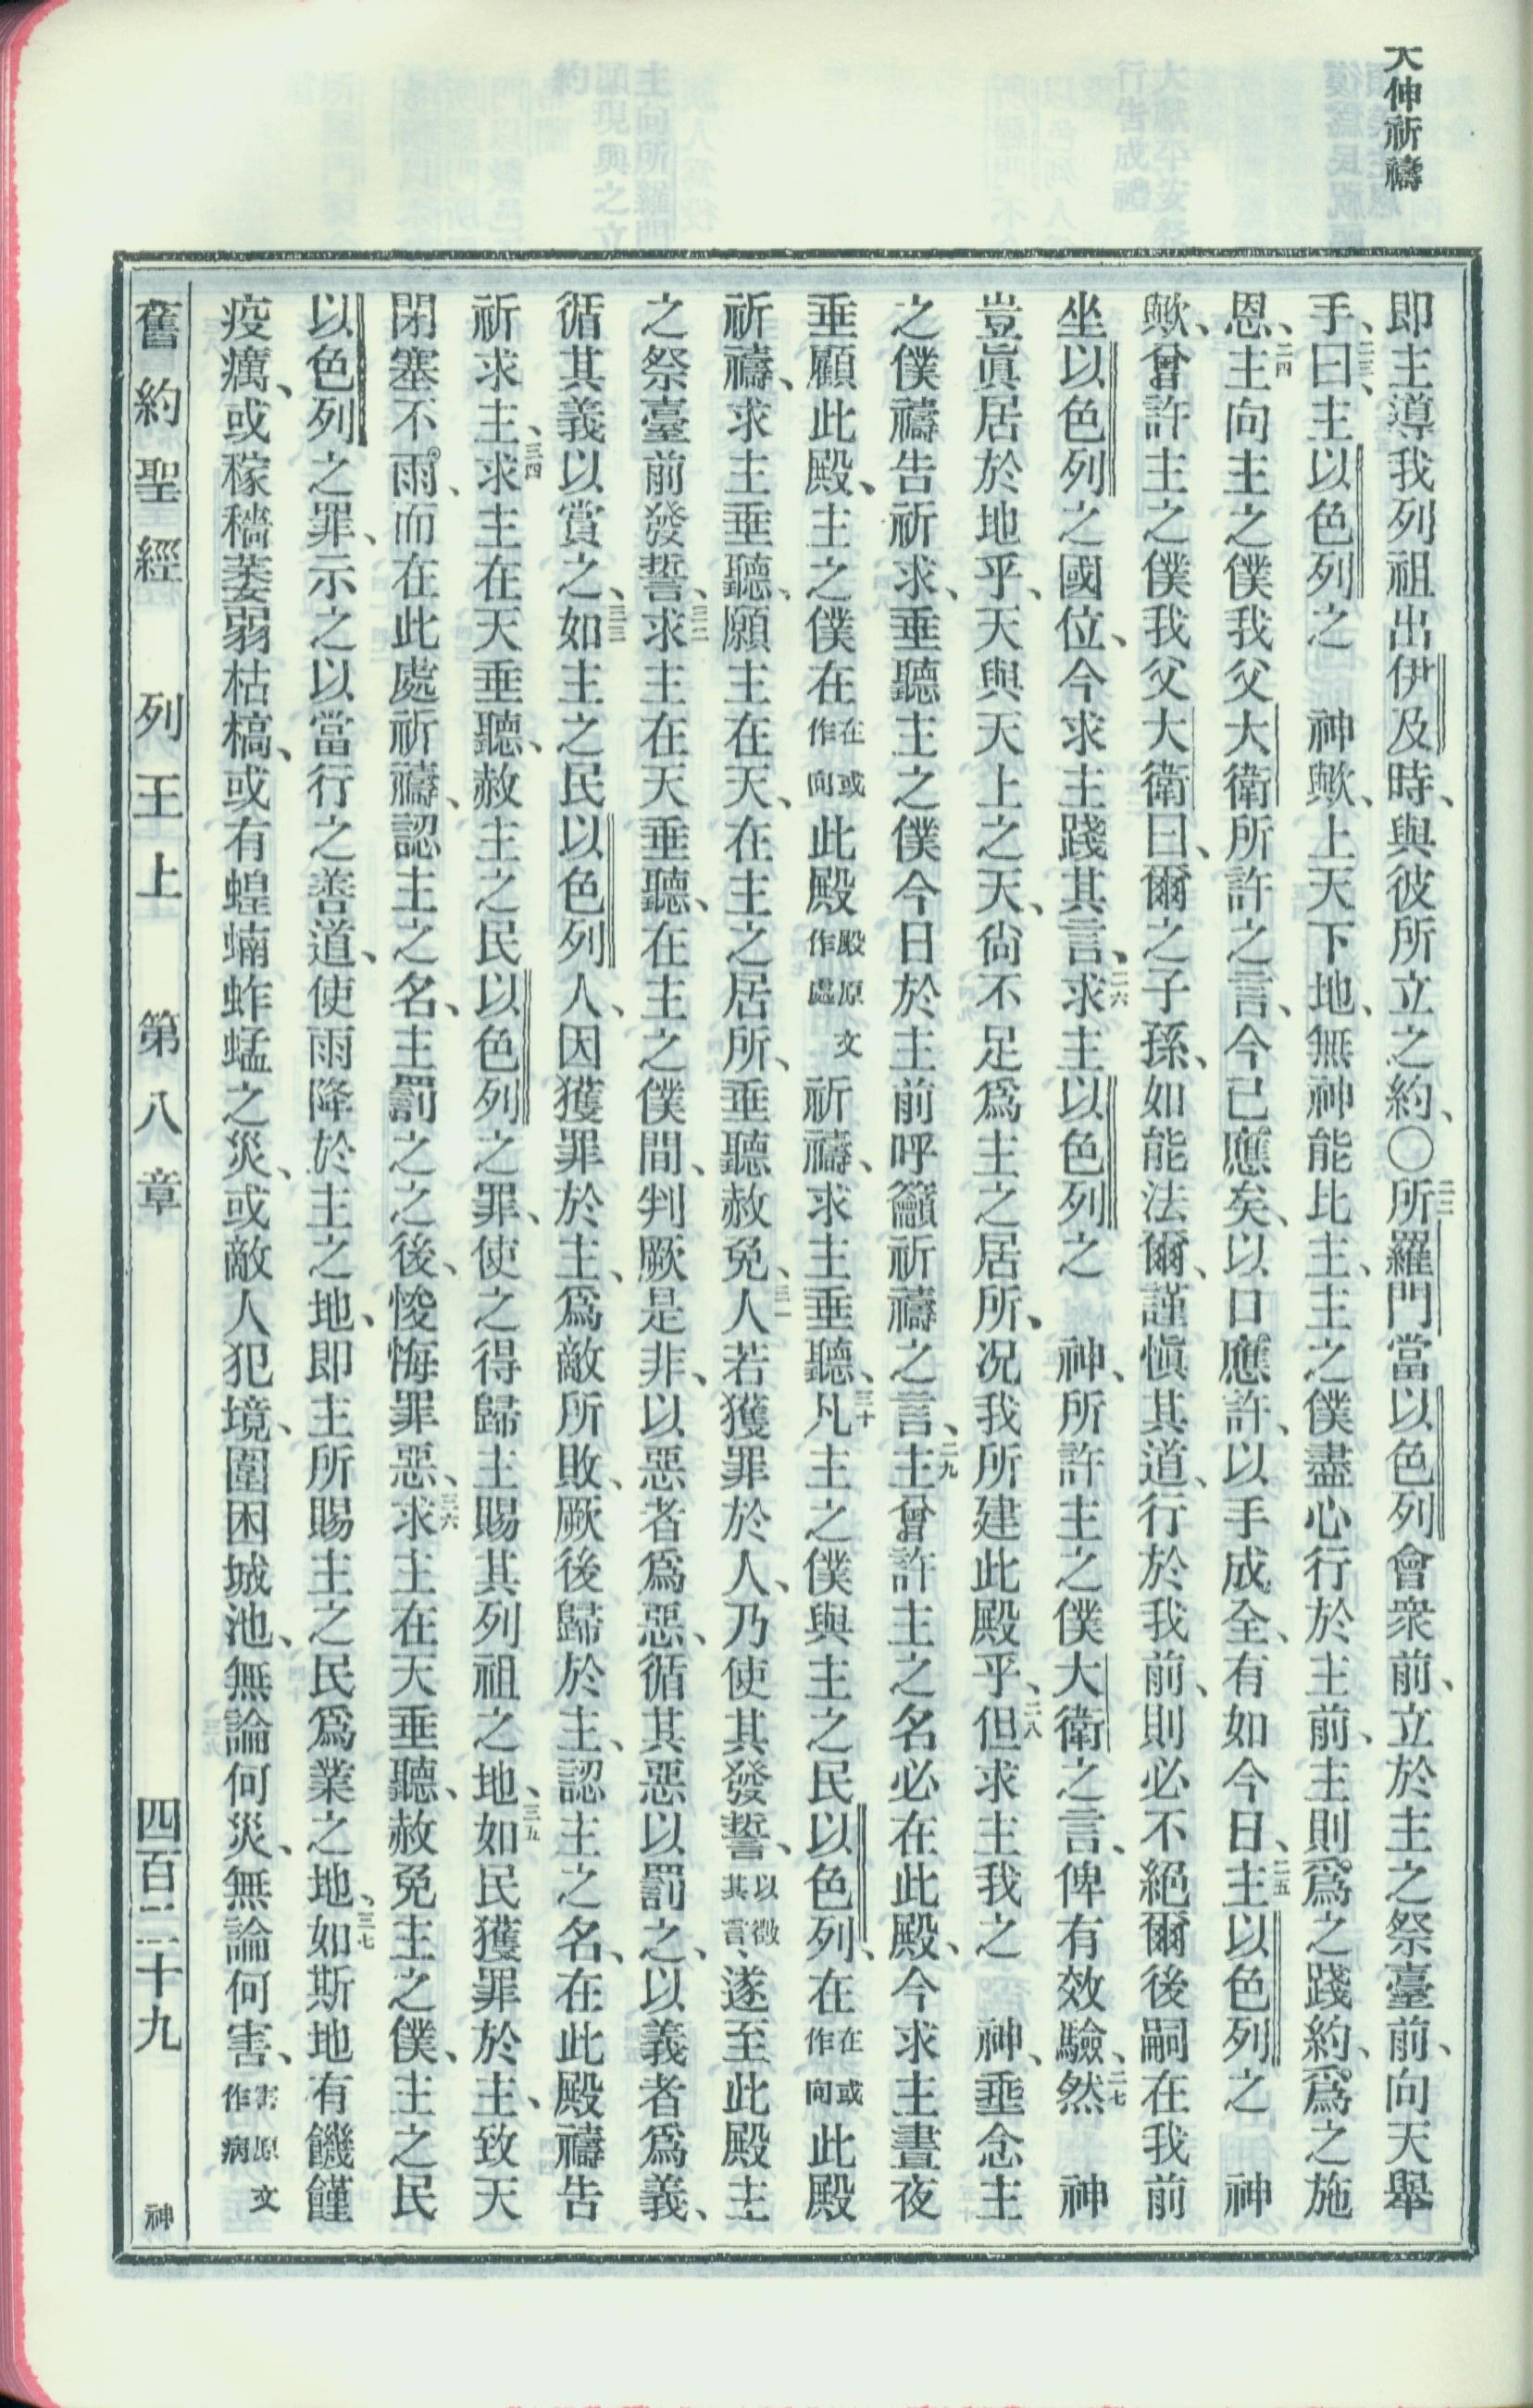 大伸祈禱
即主導我列祖出伊及時、與彼所立之約、〇二二所羅門當以色列會衆前、立於主之祭臺前、向天舉
手、二三曰、主以色列之　神歟、上天下地、無神能比主、主之僕盡心行於主前、主則爲之踐約、爲之施
恩、二四主向主之僕我父大衛所許之言、今已應矣、以口應許、以手成全、有如今日、二五主以色列之　神
歟、曾許主之僕我父大衛曰、爾之子孫、如能法爾、謹愼其道、行於我前、則必不絕爾後嗣在我前
坐以色列之國位、今求主踐其言、二六求主以色列之　神、所許主之僕大衛之言、俾有效驗、二七然　神
豈眞居於地乎、天與天上之天、尙不足爲主之居所、况我所建此殿乎、二八但求主我之　神、垂念主
之僕禱告祈求、垂聽主之僕今日於主前呼籲祈禱之言、二九主曾許主之名必在此殿、今求主晝夜
垂顧此殿、主之僕在在或作向此殿殿原文作處祈禱、求主垂聽、三十凡主之僕與主之民以色列、在在或作向此殿
祈禱、求主垂聽、願主在天、在主之居所、垂聽赦免、三一人若獲罪於人、乃使其發誓、以徵其言、遂至此殿主
之祭臺前發誓、三二求主在天垂聽、在主之僕間、判厥是非、以惡者爲惡、循其惡以罰之、以義者爲義、
循其義以賞之、三三如主之民以色列人、因獲罪於主、爲敵所敗、厥後歸於主、認主之名、在此殿禱告
祈求主、三四求主在天垂聽、赦主之民以色列之罪、使之得歸主賜其列祖之地、三五如民獲罪於主、致天
閉塞不雨、而在此處祈禱、認主之名、主罰之之後、悛悔罪惡、三六求主在天垂聽、赦免主之僕、主之民
以色列之罪、示之以當行之善道、使雨降於主之地、即主所賜主之民爲業之地、三七如斯地有饑饉
疫癘、或稼穡萎弱枯槁、或有蝗蝻蚱蜢之災、或敵人犯境、圍困城池、無論何災、無論何害、害原文作病
舊約聖經　列王上　第八章　四百二十九　神